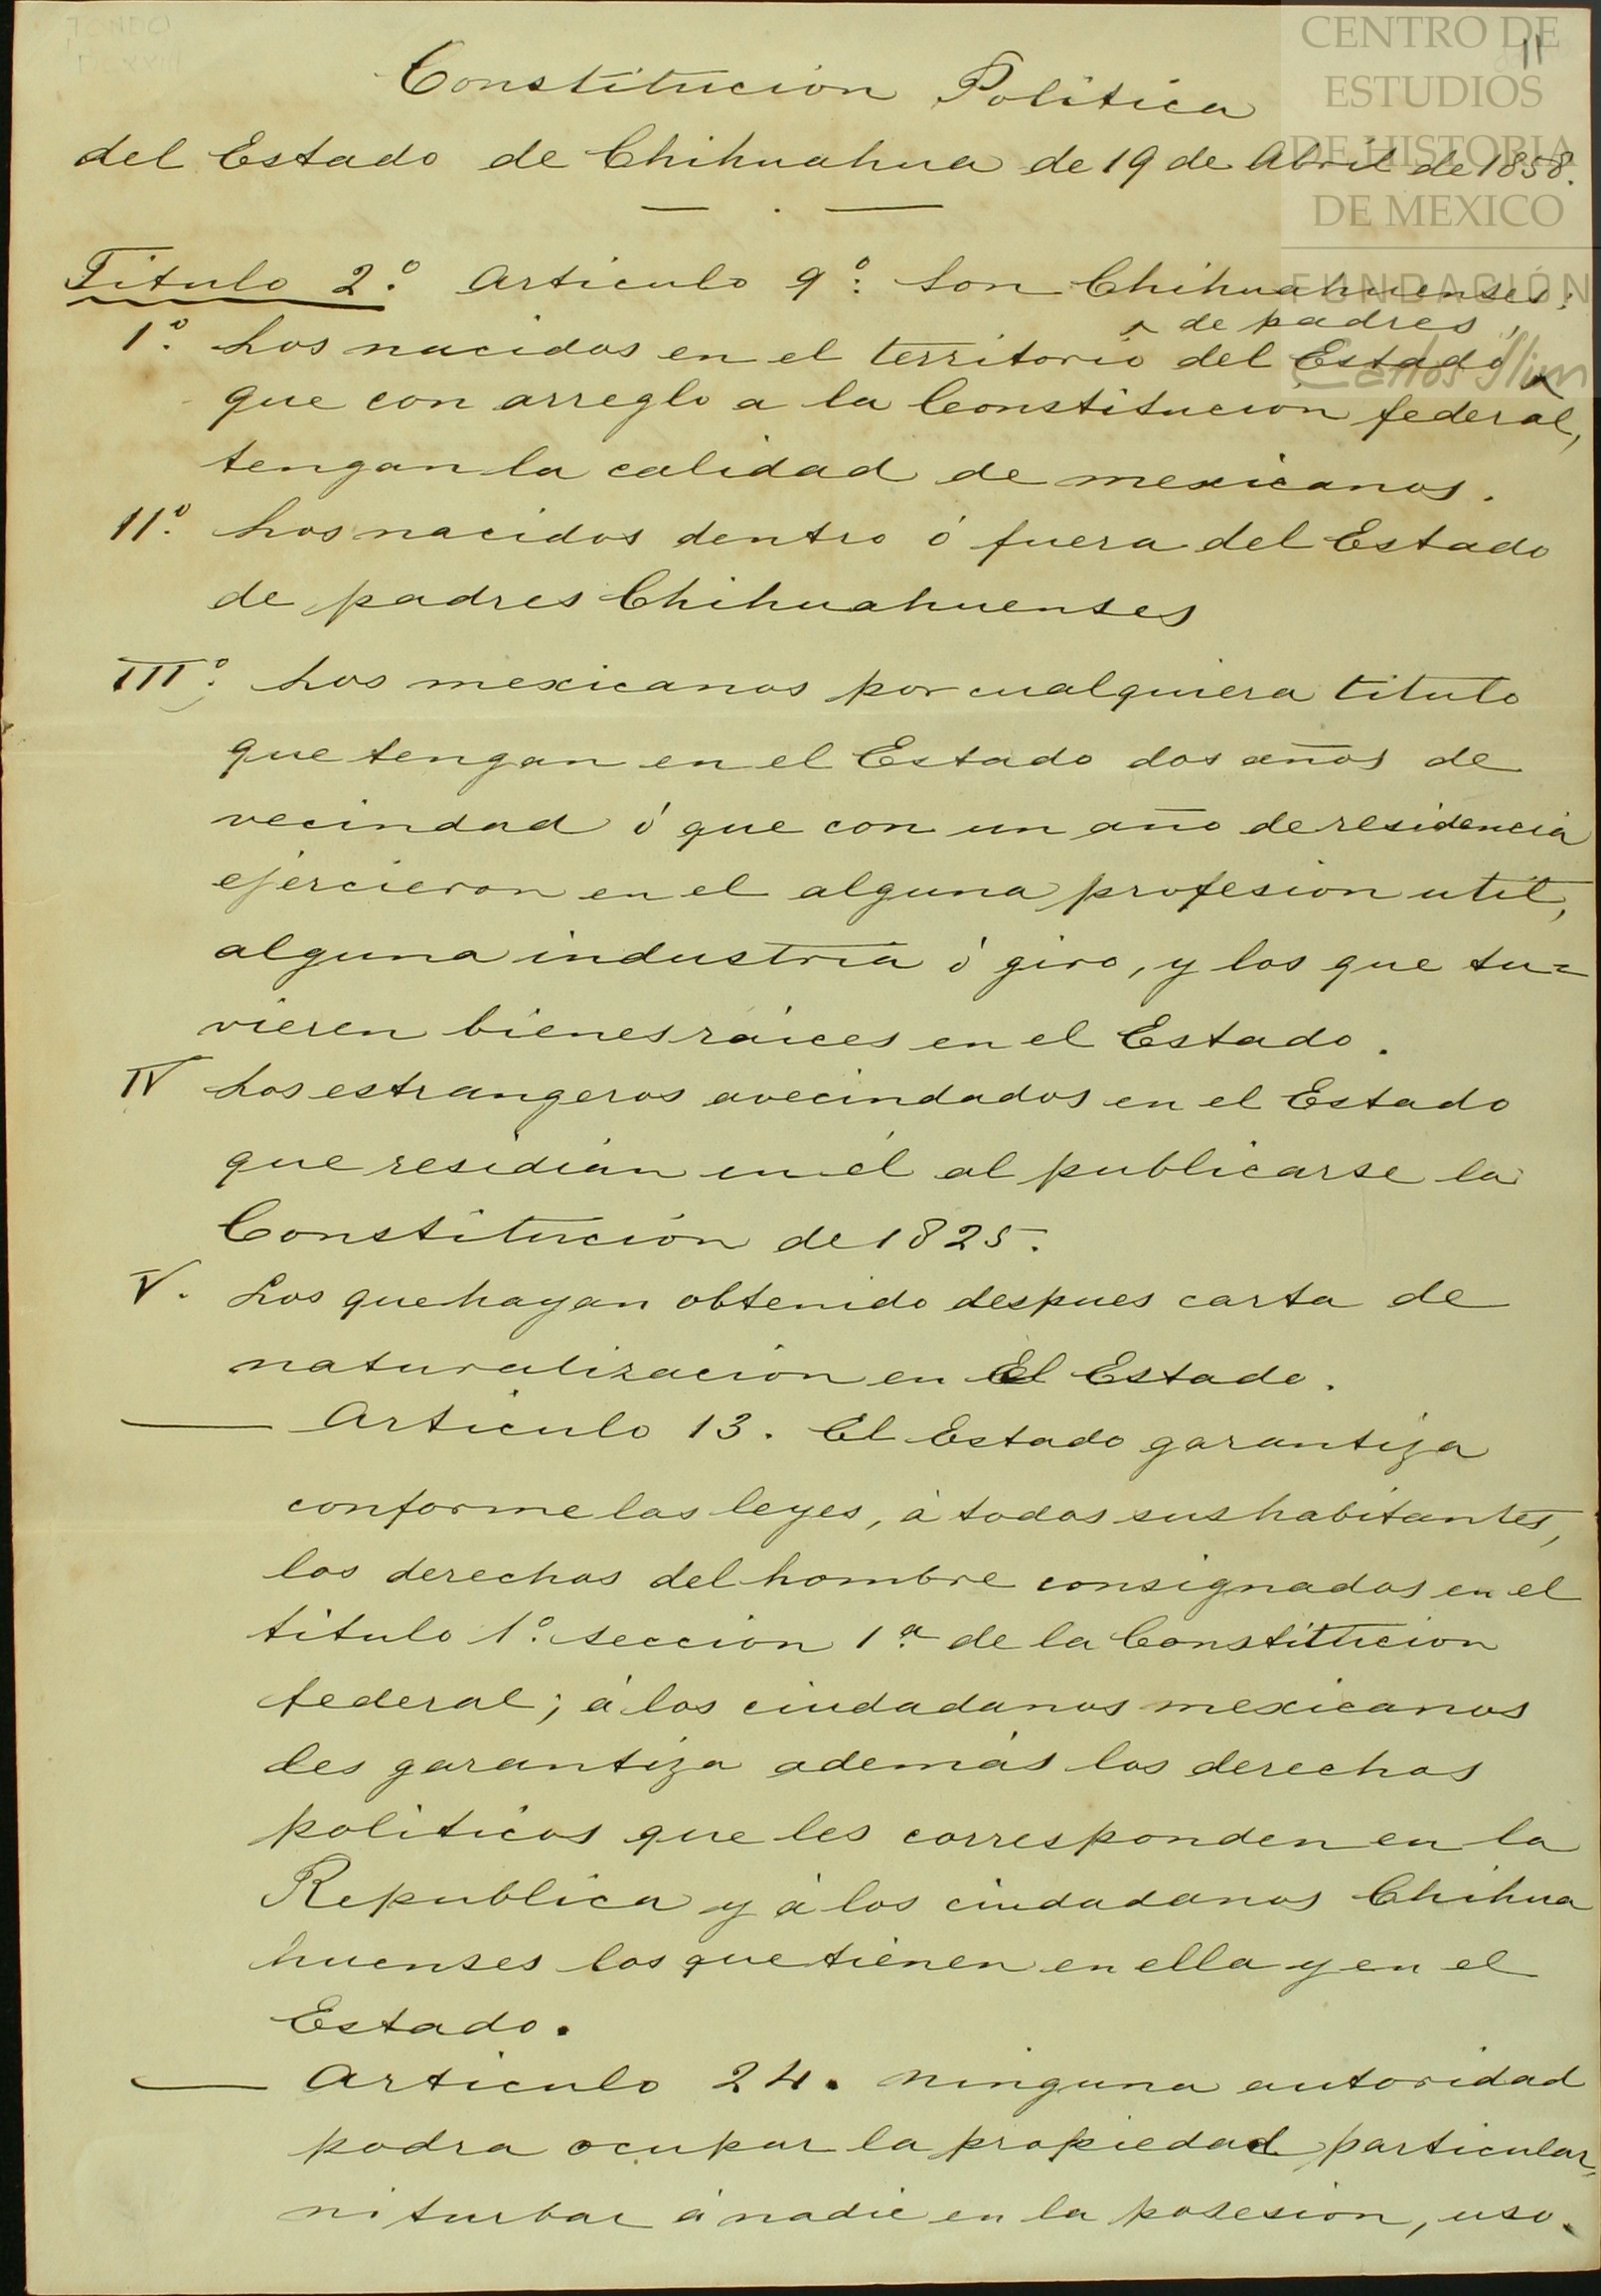 11
CENTRO DE
ESTUDIOS
DE HISTORIA
DE MEXICO
FUNDACIÓN
Carlos Slim
Constitucion Politica
del Estado de Chihuahua de 19 de Abril de 1858.
Titulo 2º. Articulo 9º: Son Chihuahuenses:
^ de padres,
1º. Los nacidos en el territorio del Estado ^
que con arreglo a la Constitucion federal,
tengan la calidad de mexicanos.
IIº. Los nacidos dentro ó fuera del Estado
de padres Chihuahuenses
IIIº. Los mexicanos por cualquiera titulo
que tengan en el Estado dos años de
vecindad ó que con un año de residencia
ejercieron en el alguna profesion util,
alguna industria ó giro, y los que tu=
vieren bienes raices en el Estado.
IV Los estrangeros avecindados en el Estado
que residian en él al publicarse la
Constitución de 1825.
V. Los que hayan obtenido despues carta de
naturalización en El Estado.
— Articulo 13. El Estado garantiza
conforme las leyes, á todos sus habitantes,
los derechos del hombre consignados en el
titulo 1º. seccion 1ª de la Constitucion
federal; á los ciudadanos mexicanos
les garantiza además los derechos
politicos que les corresponden en la
Republica y á los ciudadanos Chihua
huenses los que tienen en ella y en el
Estado.
— Articulo 24. Ninguna autoridad
podra ocupar la propiedad particular,
ni turbar á nadie en la posesion, uso.